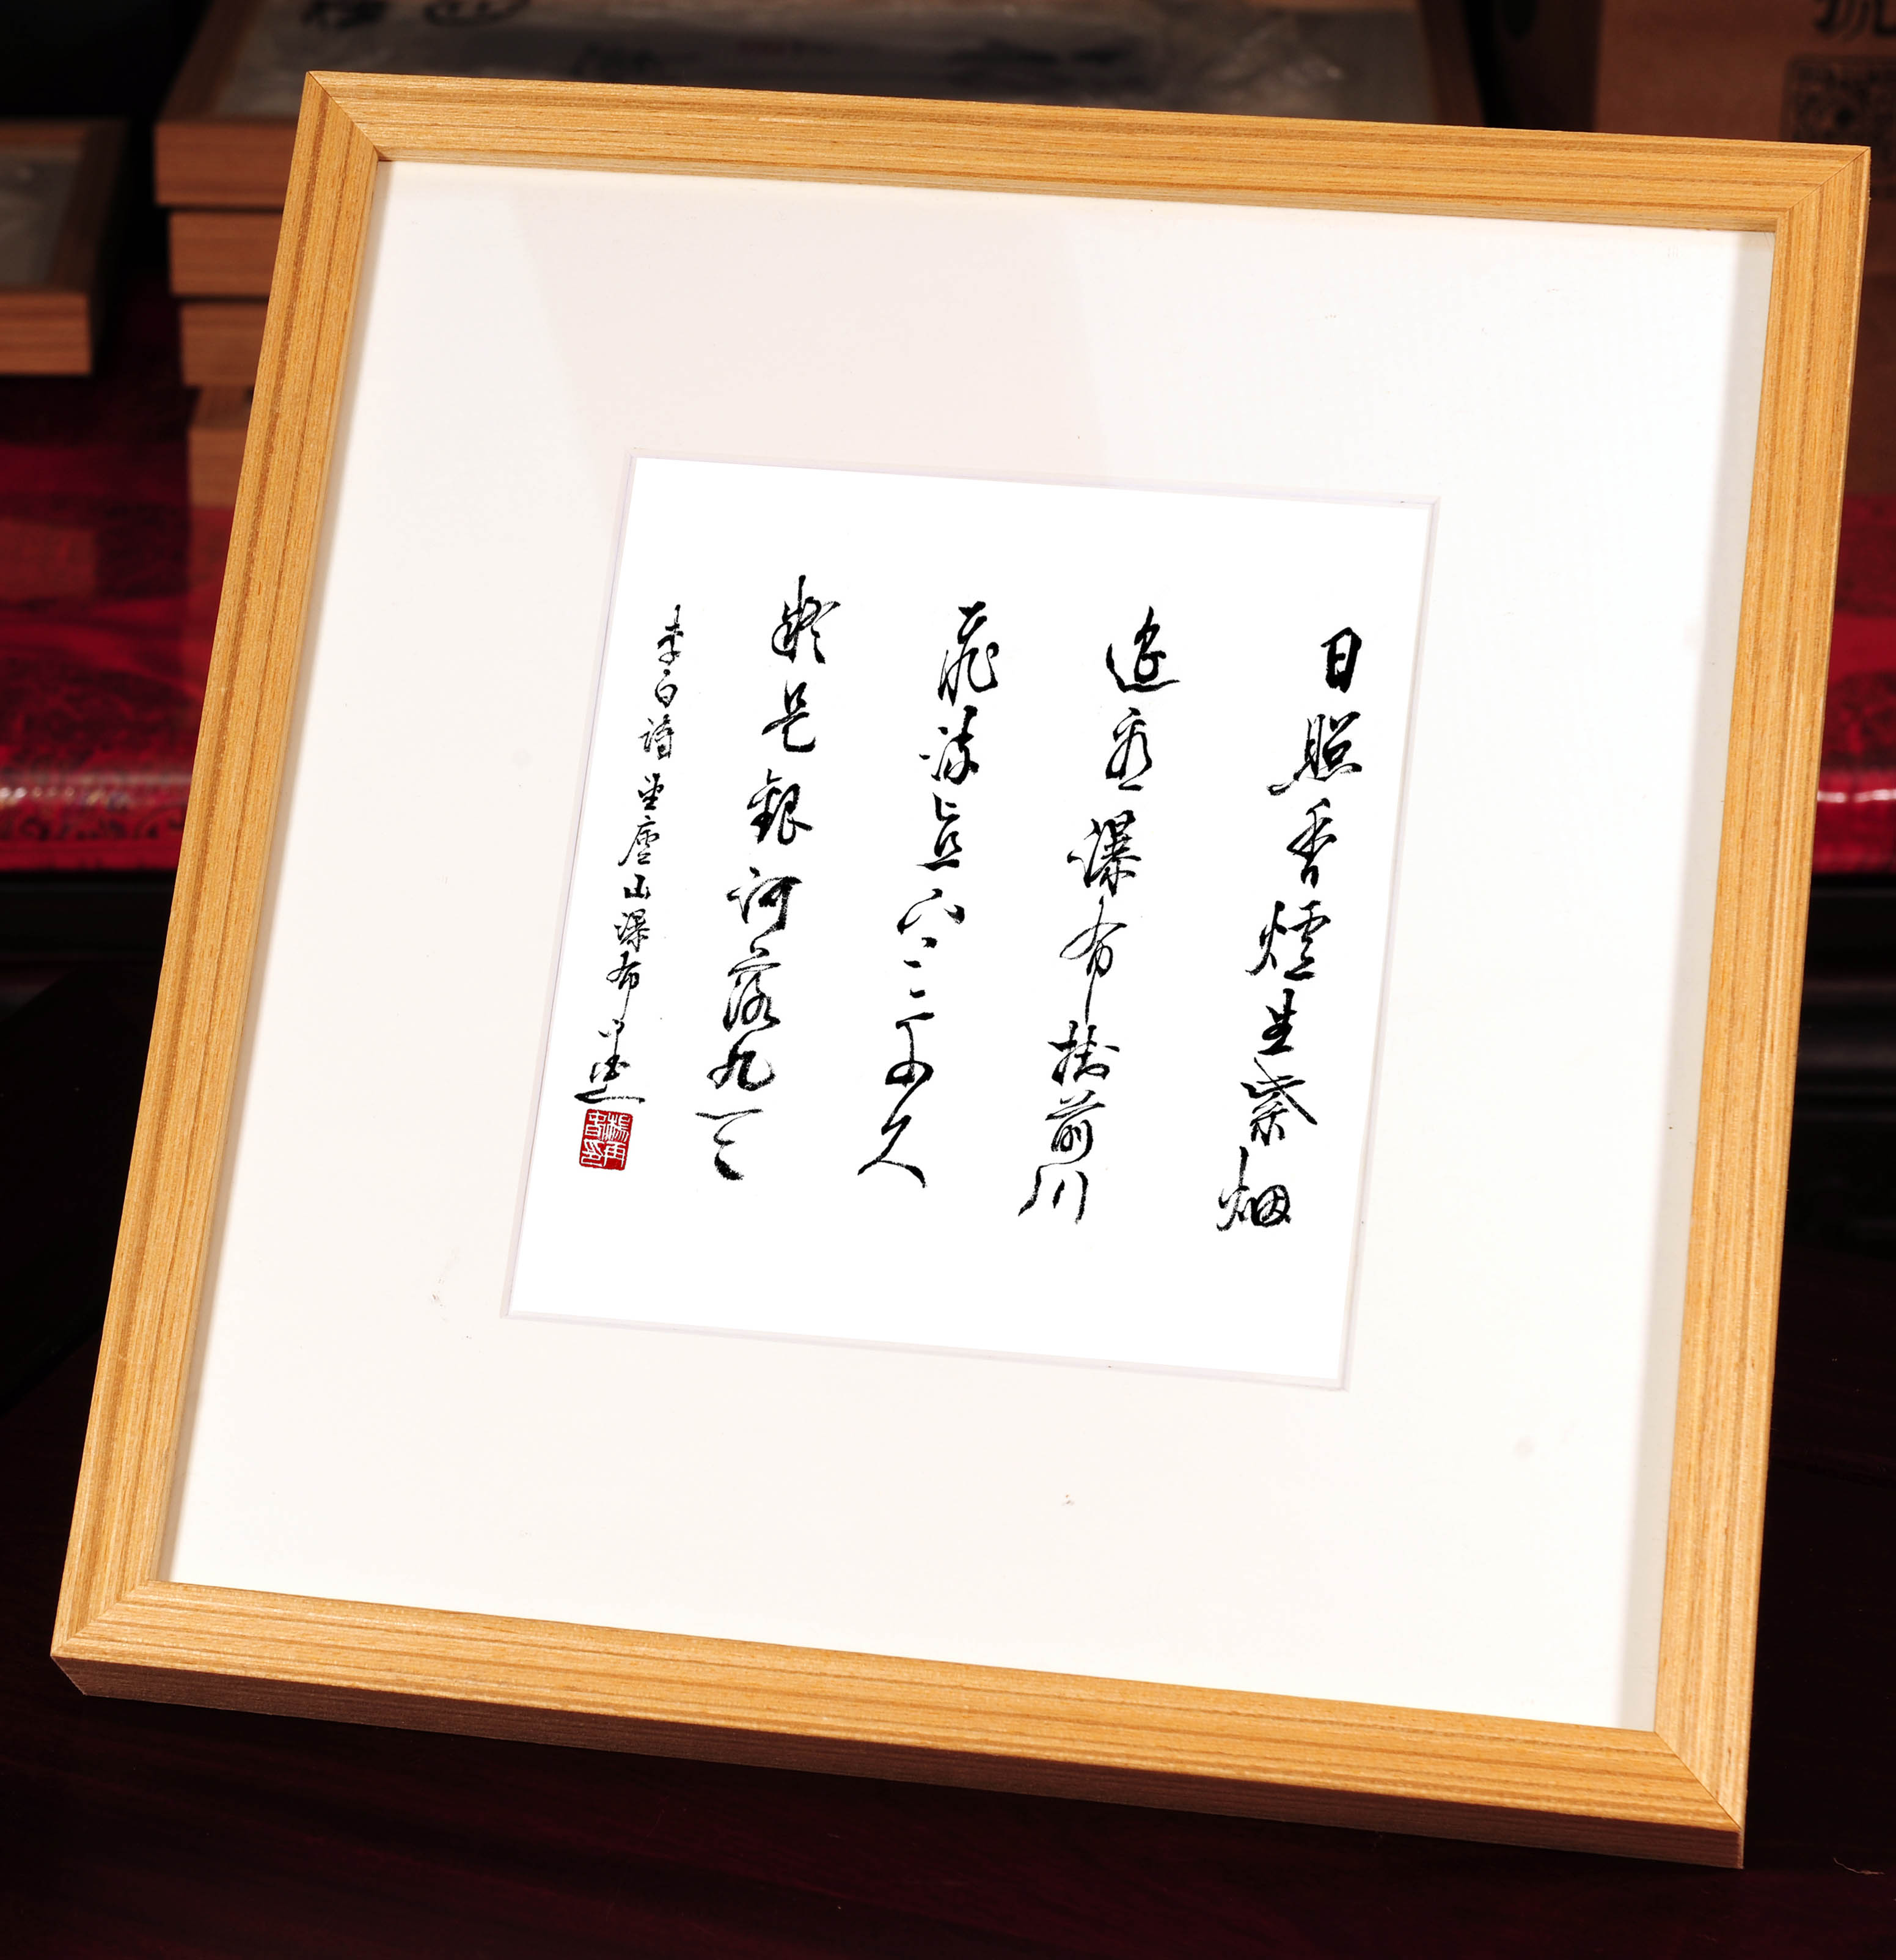 日照香爐生紫烟
遥看瀑布掛前川
飛流直下三千尺
疑是銀河落九天
李白詩望廬山瀑布